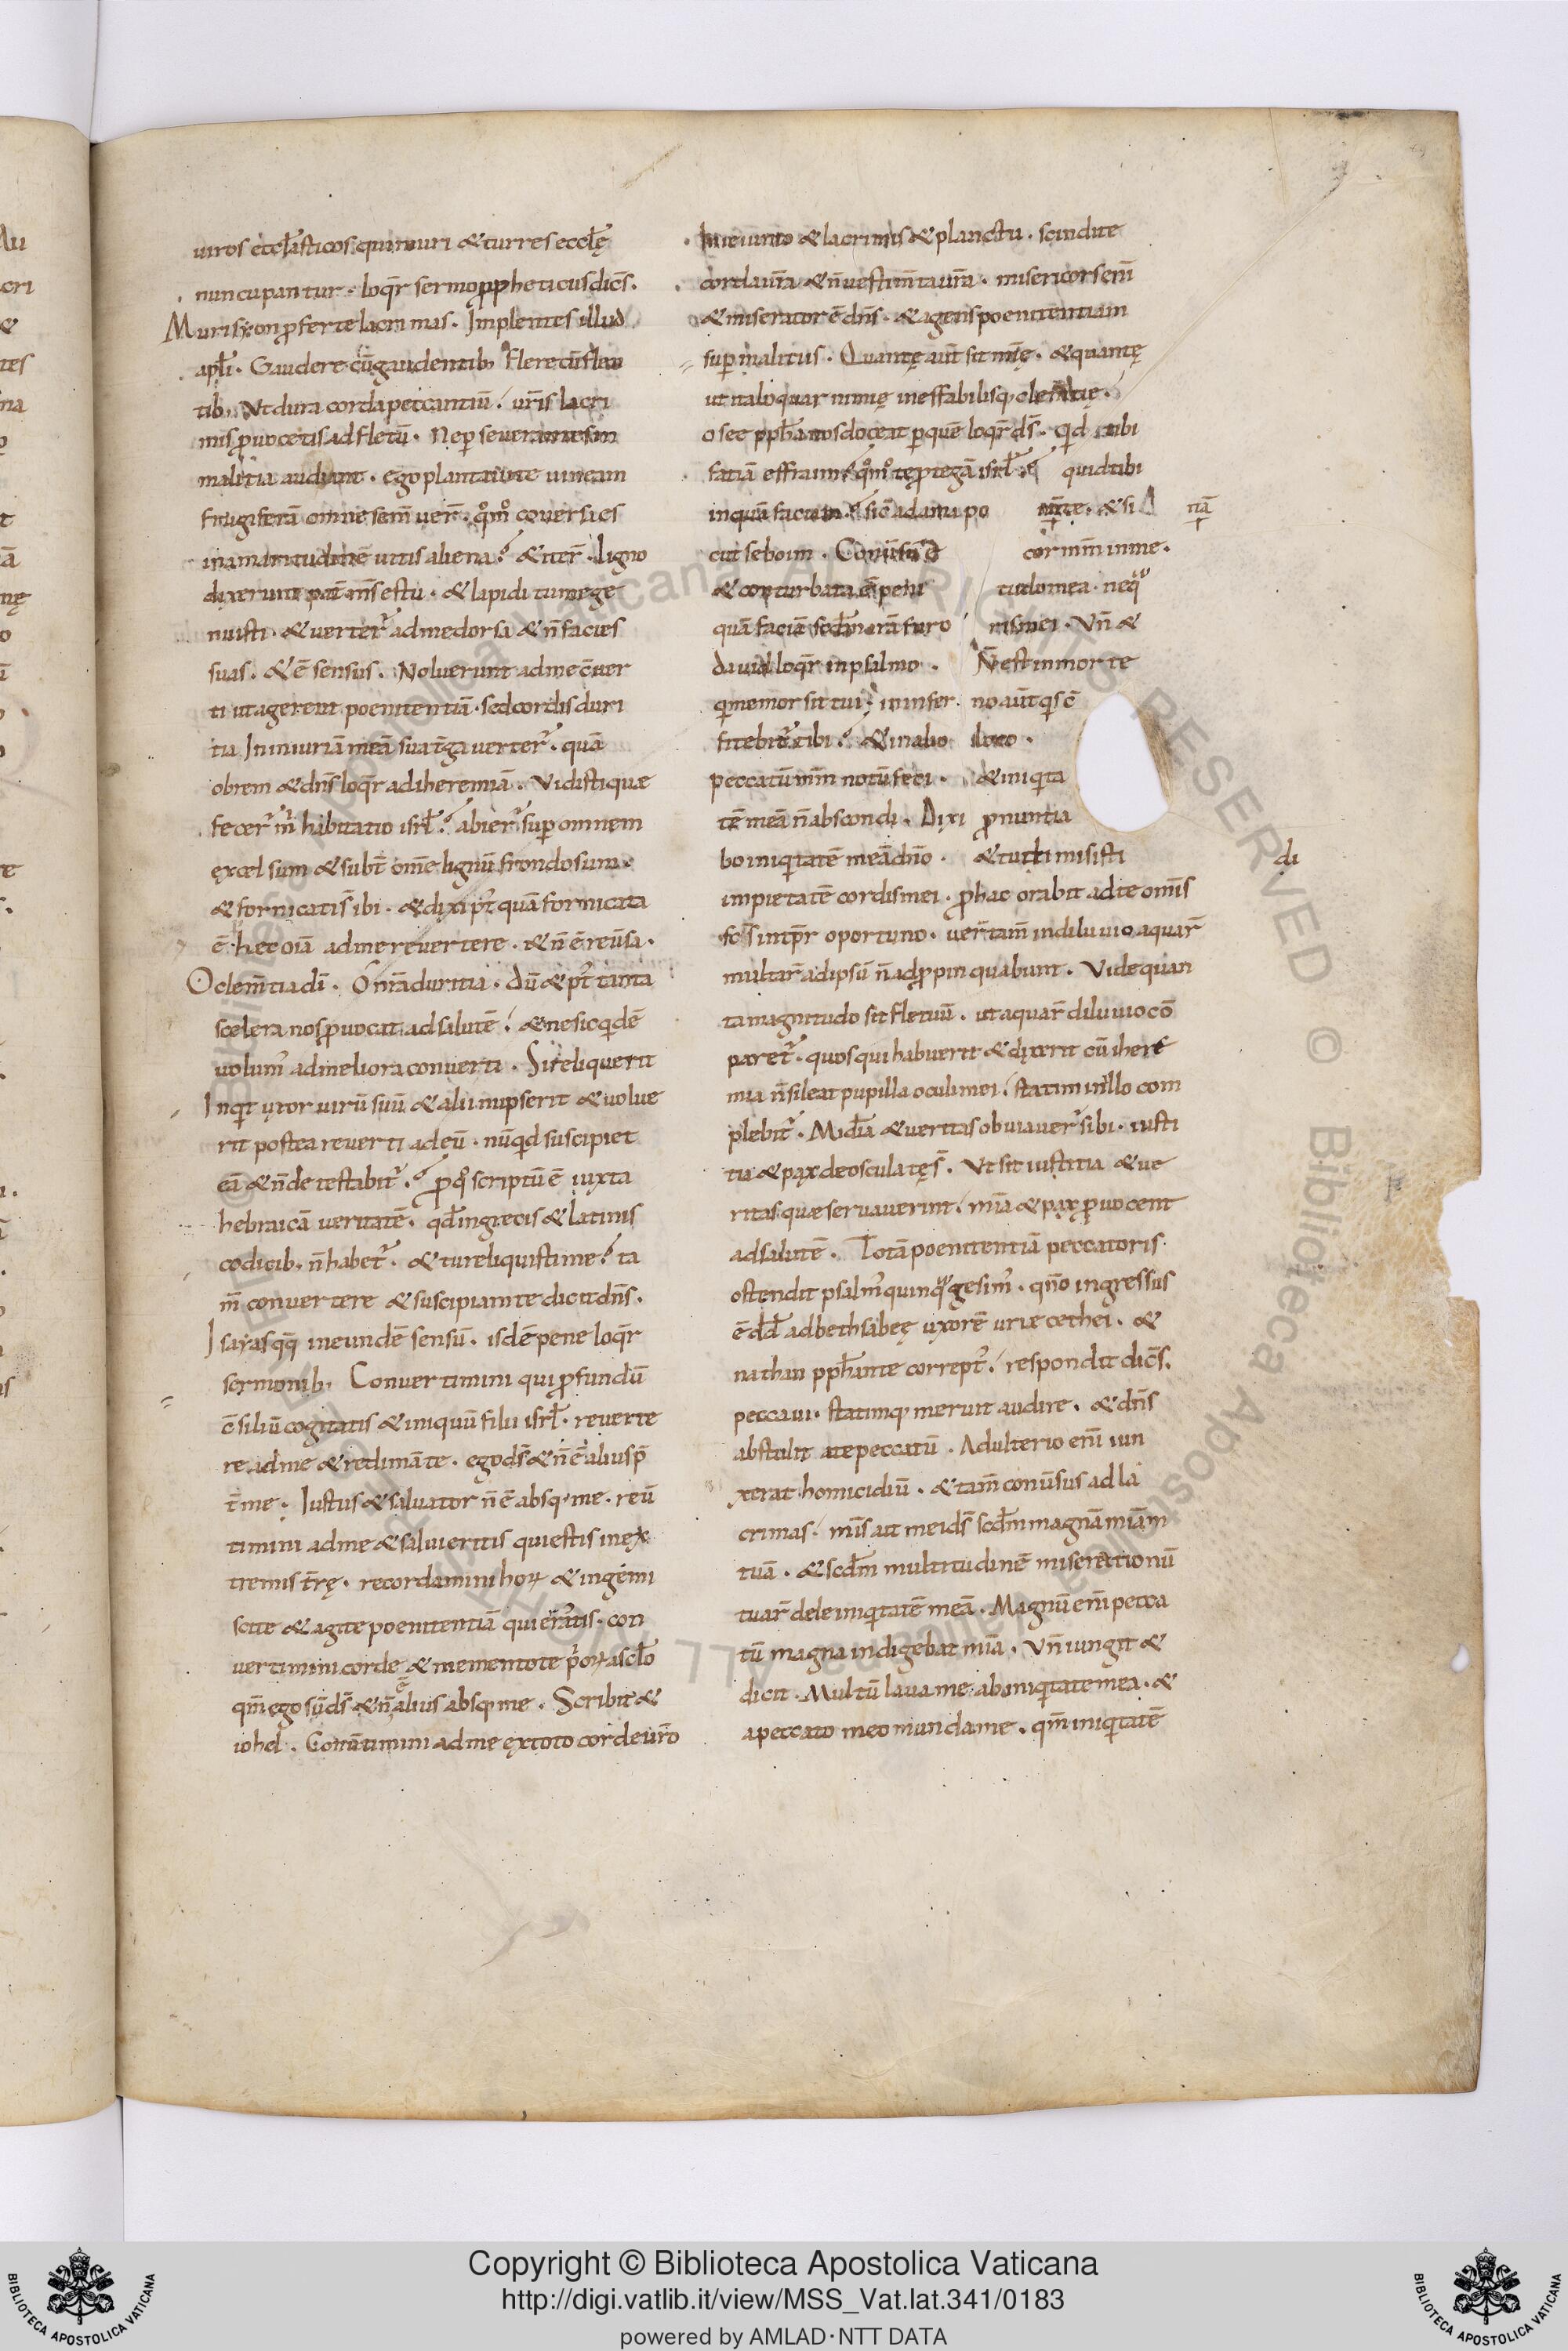 uiros eccl̄asticos qui muri & turres eccl̄ę
nuncupantur. loqr̄ sermo ppheticus dicēs.
Muri sion ꝓferte lacrimas. Implentes illud
apl̄i. Gaudere cū gaudentib; flere cū flen
tib; Ut dura corda peccantiū. ur̄is lacri
mis ꝓuocetis ad fletū. Ne perseuerantes in
malitia audiant. Ego plantaui te uineam
frugiferā omne sem̄ uer̄. qm̊o cōuersa es
in amaritudinē uitis aliena? & iter̄. Ligno
dixerunt pat̄ m̄s es tu. & lapidi tu me ge
nuisti. & uerter̄ ad me dorsa & n̄ facies
suas. & ē sensus. Noluerunt ad me c̄uer
ti ut agerent poenitentiā. sed cordis duri
tia In iniuriā meā sua t̄ga uerter̄. quā
obrem & dn̄s loqr̄ ad iheremiā. Vidisti quae
fecer̄ m̄ habitatio isrl̄? abier̄ sup omnem
excelsum & subt̄ om̄e lignū frondosum.
& fornicatīs ibi. & dixi p̄t quā fornicata
ē hęc oīa ad me reuertere. & n̄ ē reūsa.
O clem̄tia dī. O nr̄a duritia. Dū & p̄t tanta
scelera nos ꝓuocat ad salutē. & ne sic qidē
uolum̄ ad meliora conuerti. Si reliquerit
Inqt uxor uirū suū & alii nupserit & uolue
rit postea reuerti ad eū. nūqd suscipiet
eā & n̄ detestabit̄? ꝓ qo scriptū ē iuxta
hebraicā ueritatē. qd̄ in grecis & latinis
codicib; n̄ habet̄. & tu reliquisti me? ta
m̄ conuertere & suscipiam te dicit dn̄s.
Isayas qq̄ in eundē sensū. isdē pene loqr̄
sermonib; Conuertimini qui ꝓfundū
c̄siliū cogitatis & iniquū filii isrl̄. reuerte
re ad me & redimā te. ego ds̄ & n̄ ē alius p̄
t̄ me. Iustus & saluator n̄ ē absq; me. reū
timini ad me & salui eritis qui estis in ex
tremis t̄rę. recordamini hoꝝ & ingemi
scite & agite poenitentiā qui erratis. con
uertimini corde & mementote p̄oꝝ a scl̄o
qm̄ ego sū ds̄ & n̄ ē alius absq; me. Scribit &
iohel. Conūtimini ad me ex toto corde ur̄o
In ieiunio & lacrimis & planctu. scindite
corda ur̄a & n̄ uestim̄ta ur̄a. misericors em̄
& miserator ē dn̄s. & agens poenitentiam
sup malitiis. Quantę aut̄ sit mīę. & quantę
ut ita loquar nimię ineffabilisq; clem̄tię.
osee pph̄a nos doceat p quē loqr̄ ds̄. qd tibi
faciā effraim? qm̊o te ꝓtegā isrl̄? quid tibi
inquā faciam? sic̄ adama po nā te. & si
cut seboim. Conūsū ē cor mm̄ in me.
& conturbata ē peni tudo mea. neq
quā faciā scd̄m irā furo ris mei. Vn̄ &
dauid loqr̄ in psalmo. N̄ est in morte
q memor sit tui. in infer no aut̄ qs c̄
fitebit̄ tibi? & in alio loco.
peccatū mm̄ notū feci. & iniqita
tē meā n̄ abscondi. Dixi ꝓnuntia
bo iniqitatē meā dn̄o. & tu remisisti
impietatē cordis mei. ꝓ hac orabit ad te omīs
sc̄s in tp̄r oportuno. uer̄tam̄ in diluuio aquar̄
multar̄ ad ipsū n̄ adꝓpinquabunt. Vide quan
ta magnitudo sit fletuū. ut aquar̄ diluuio cō
paret̄. quos qui habuerit & dixerit cū ihere
mia n̄ sileat pupilla oculi mei. statim in illo com
plebit̄. Mīdia & ueritas obuiauer̄ sibi. iusti
tia & pax deosculatę s̄. Ut sit iustitia & ue
ritas quae seruauerint. mīa & pax ꝓuocent
ad salutē. Totā poenitentiā peccatoris
ostendit psalm̄ quinquagesim̄. qn̄o ingressus
ē dd̄ ad bethsabeę uxorē uriae cethei. &
nathan pph̄ante corrept̄. respondit dicēs.
peccaui. statimq; meruit audire. & dn̄s
abstulit a te peccatū. Adulterio enī iun
xerat homicidiū. & tam̄ conūsus ad la
crimas. mīs aīt mei ds̄ scd̄m magnā mīam
tuā. & scd̄m multitudinē miserationū
tuar̄ dele iniqitatē meā. Magnū enī pecca
tū magna indigebat mīa. Vn̄ iungit &
dicit. Multū laua me ab iniqitate mea. &
a peccato meo munda me. qm̄ iniqitatē
nā
di
Copyright © Biblioteca Apostolica Vaticana
http://digi.vatlib.it/view/MSS_Vat.lat.341/0183
powered by AMLAD·NTT DATA
BIBLIOTECA APOSTOLICA VATICANA
BIBLIOTECA APOSTOLICA VATICANA